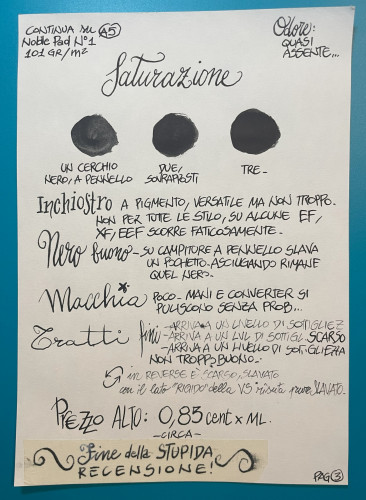 CONTINUA SU A5
Noble Pad N°1
101 GR/m²
Odore:
QUASI
ASSENTE...
Saturazione
UN CERCHIO
NERO, A PENNELLO
DUE,
SOVRAPPOSTI
TRE-
Inchiostro A PIGMENTO, VERSATILE MA NON TROPPO.
NON PER TUTTE LE STILO, SU ALCUNE EF,
XF, EEF SCORRE FATICOSAMENTE.
Nero buono - SU CAMPITURE A PENNELLO SLAVA
UN POCHETTO. ASCIUGANDO RIMANE
QUEL NERO.
Macchia POCO - MANI E CONVERTER SI
PULISCONO SENZA PROB...
Tratti fini - ARRIVA A UN LIVELLO DI SOTTIGLIEZ
- ARRIVA A UN LVL DI SOTTIGL. SCARSO
- ARRIVA A UN LIVELLO DI SOTTIGLIEZZA
NON TROPPO BUONO.
in REVERSE È SCARSO, SLAVATO
con il lato "RIGIDO" della VS risulta pure SLAVATO.
PREZZO ALTO: 0,85 cent x ML.
-CIRCA-
Fine della STUPIDA
RECENSIONE!
PAG 3